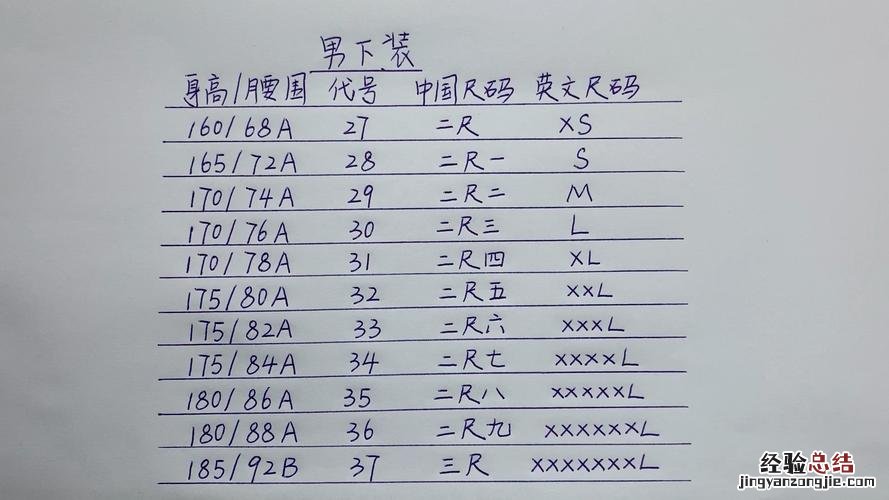 男下装
身高/腰围 代号 中国尺码 英文尺码
160/68A 27 二尺 XS
165/72A 28 二尺一 S
170/74A 29 二尺二 M
170/76A 30 二尺三 L
170/78A 31 二尺四 XL
175/80A 32 二尺五 xxL
175/82A 33 二尺六 xxxL
175/84A 34 二尺七 xxxxL
180/86A 35 二尺八 xxxxxL
180/88A 36 二尺九 xxxxxxL
185/92B 37 三尺 xxxxxxxL
经验总结
jingyanzongjie.com